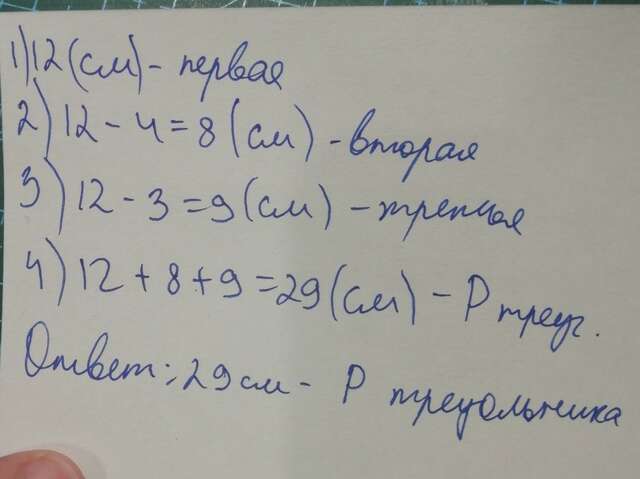 1) 12 (см) - первая
2) 12 - 4 = 8 (см) - вторая
3) 12 - 3 = 9 (см) - третья
4) 12 + 8 + 9 = 29 (см) - P треуг.
Ответ: 29 см - P треуольника